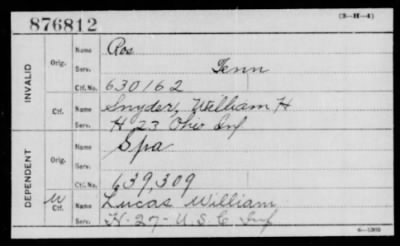 876812
(3—H—4)
INVALID
Orig.
Name Ros
Serv. Tenn
Ctf. No. 630162
Ctf.
Name Snyder, William H
Serv. H 23 Ohio Inf
DEPENDENT
Orig.
Name Spa
Serv.
Ctf. No. 639,309
W
Ctf.
Name Lucas William
Serv. H-27-U.S.C. Inf